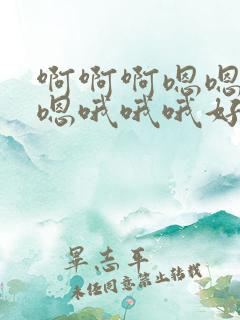 啊啊啊嗯嗯
嗯哦哦哦好
晕志平
未经同意禁止转载